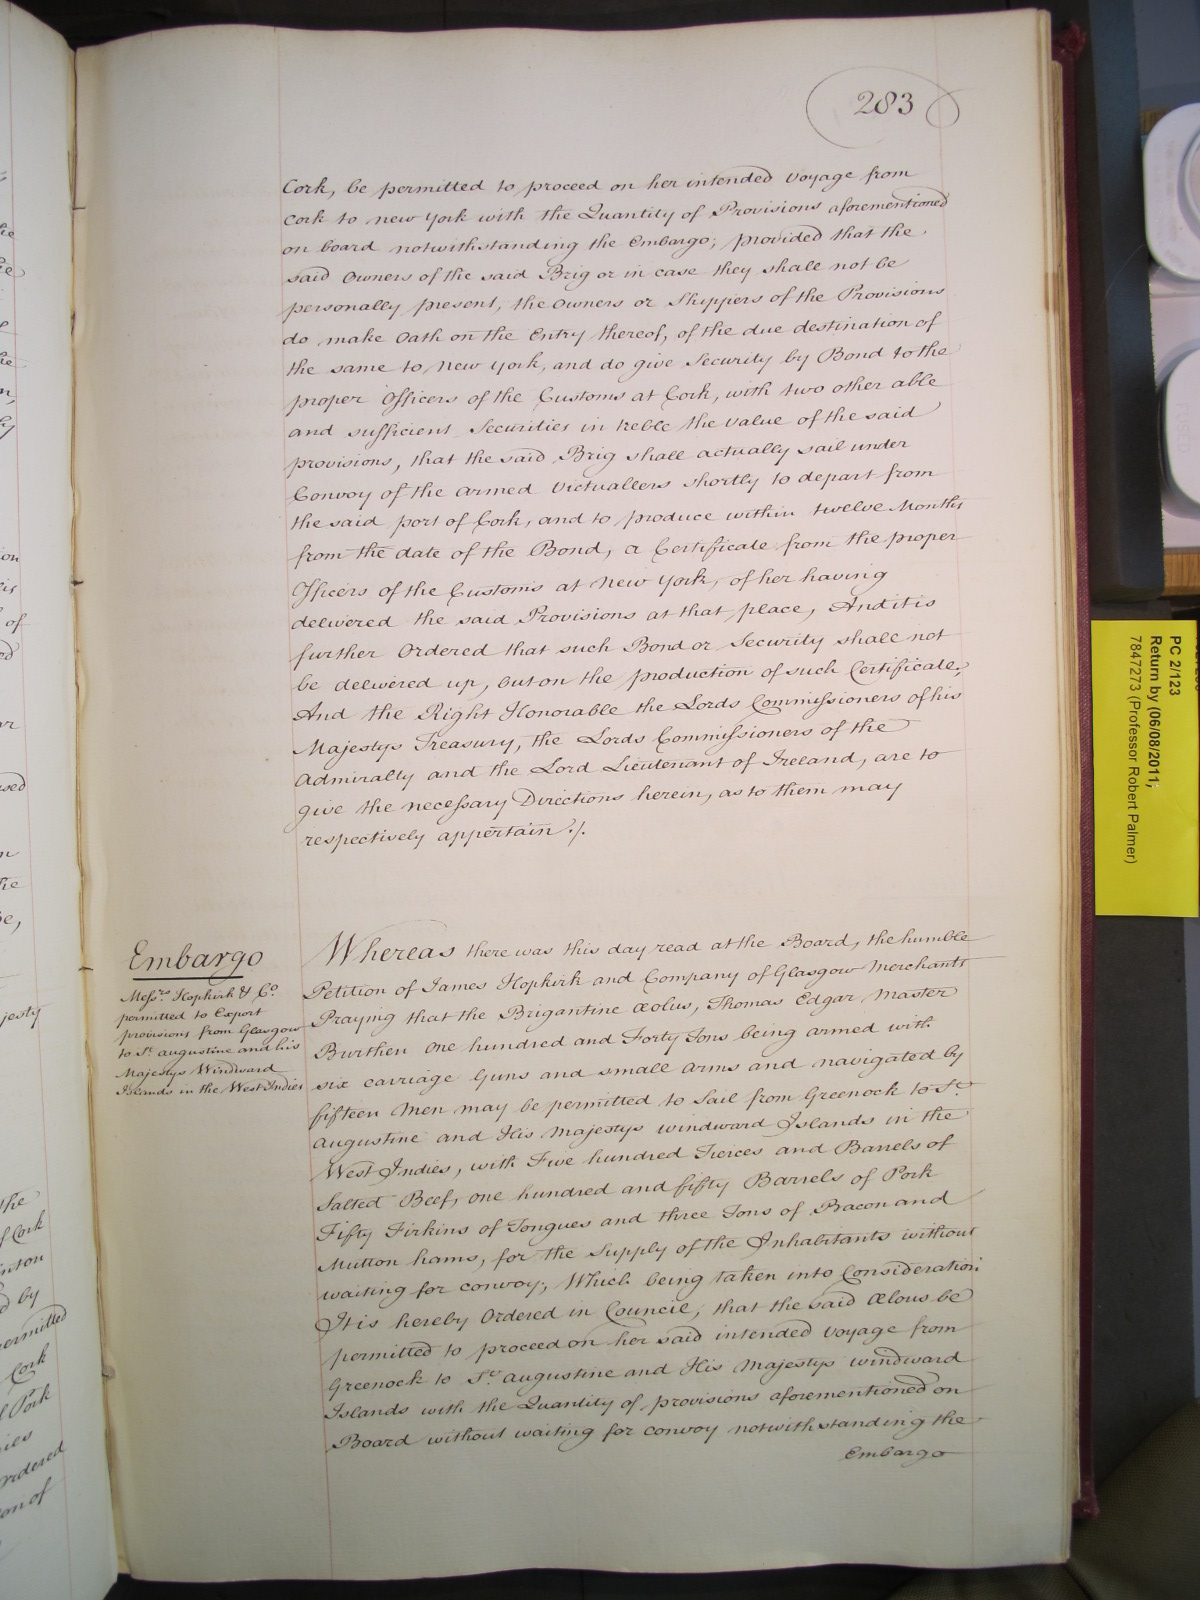 283
Cork, be permitted to proceed on her intended Voyage from
Cork to New York with the Quantity of Provisions aforementioned
on board notwithstanding the Embargo; provided that the
said Owners of the said Brig or in case they shall not be
personally present, the Owners or Shippers of the Provisions
do make Oath on the Entry thereof, of the due destination of
the same to New York, and do give Security by Bond to the
proper Officers of the Customs at Cork, with two other able
and sufficient Securities in treble the value of the said
provisions, that the said Brig shall actually sail under
Convoy of the armed Victuallers shortly to depart from
the said port of Cork, and to produce within twelve Months
from the date of the Bond, a Certificate from the proper
Officers of the Customs at New York, of her having
delivered the said Provisions at that place, And it is
further Ordered that such Bond or Security shall not
be delivered up, but on the production of such Certificate;
And the Right Honorable the Lords Commissioners of his
Majestys Treasury, the Lords Commissioners of the
Admiralty and the Lord Lieutenant of Ireland, are to
give the necessary Directions herein, as to them may
respectively appertain ./.
Embargo
Messrs. Hopkirk & Co.
permitted to Export
provisions from Glasgow
to St. Augustine and his
Majestys Windward
Islands in the West Indies
Whereas there was this day read at the Board, the humble
Petition of James Hopkirk and Company of Glasgow Merchants
Praying that the Brigantine Æolus, Thomas Edgar Master
Burthen One hundred and Forty Tons being armed with
six carriage Guns and small Arms and navigated by
fifteen Men may be permitted to Sail from Greenock to St.
Augustine and His Majestys windward Islands in the
West Indies, with Five hundred Tierces and Barrels of
Salted Beef, one hundred and fifty Barrels of Pork
Fifty Firkins of Tongues and three Tons of Bacon and
Mutton hams, for the Supply of the Inhabitants without
waiting for convoy; Which being taken into Consideration
It is hereby Ordered in Council, that the said Ælous be
permitted to proceed on her said intended Voyage from
Greenock to St. Augustine and His Majestys windward
Islands with the Quantity of provisions aforementioned on
Board without waiting for convoy notwithstanding the
Embargo
PC 2/123
Return by (06/08/2011;
7847273 (Professor Robert Palmer)